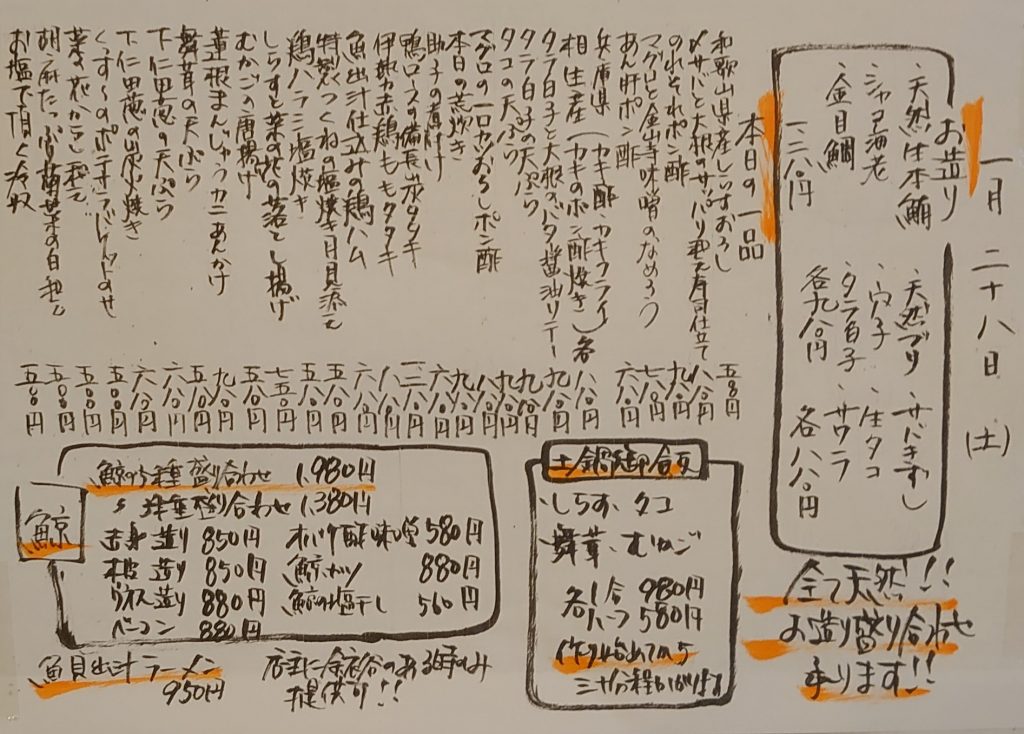 一月二十八日(土)
お造り
・天然生本鮪
・シャコ海老
・金目鯛
一、二八〇円
・天然ブリ
・穴子
・タラ白子
各九八〇円
・サバきずし
・生タコ
・サワラ
各八八〇円
全て天然!!
お造り盛り合わせ
承ります!!
本日の一品
和歌山県産しらすおろし 五八〇円
〆サバと大根のサッパリ和え寿司仕立て 八八〇円
のれそれポン酢 九八〇円
マグロと金山寺味噌のなめろう 七八〇円
あん肝ポン酢 六八〇円
兵庫県 (カキ酢・カキフライ)各
相生産 (カキのポン酢焼き) 八八〇円
タラ白子と大根のバタ醤油ソテー 九八〇円
タラ白子の天ぷら 九八〇円
タコの天ぷら 九八〇円
マグロの一口カツおろしポン酢 八八〇円
本日の荒炊き 九八〇円
助子の煮付け 六八〇円
鴨ロースの備長炭タタキ
伊勢赤鶏ももタタキ 八八〇円
魚出汁仕込みの鶏ハム 六八〇円
特製つくねの塩焼き月見添え 五八〇円
鶏ハラミ塩焼き 五八〇円
しらすと菜の花の落とし揚げ 七五〇円
むかごの唐揚げ 五八〇円
蓮根まんじゅうカニあんかけ 九八〇円
舞茸の天ぷら 五八〇円
下仁田葱の天ぷら 六八〇円
下仁田葱の炭火焼き 六八〇円
のポテサラバケットのせ 五八〇円
菜の花からし和え 五八〇円
胡麻たっぷり菊菜の白和え 五八〇円
お塩で頂く冷奴 五八〇円
鯨
鯨の5種盛り合わせ 1,980円
3種盛り合わせ 1,380円
赤身造り 850円
本皮造り 850円
ウネス造り 880円
ベーコン 880円
オバケ酢味噌 580円
鯨カツ 880円
鯨の塩干し 560円
土鍋御飯
・しらす、タコ
舞茸、むかご
各1合 980円
各ハーフ 580円
作り始めてから
三十分程かかります
魚貝出汁ラーメン
950円
店主に余裕のある時のみ
提供!!